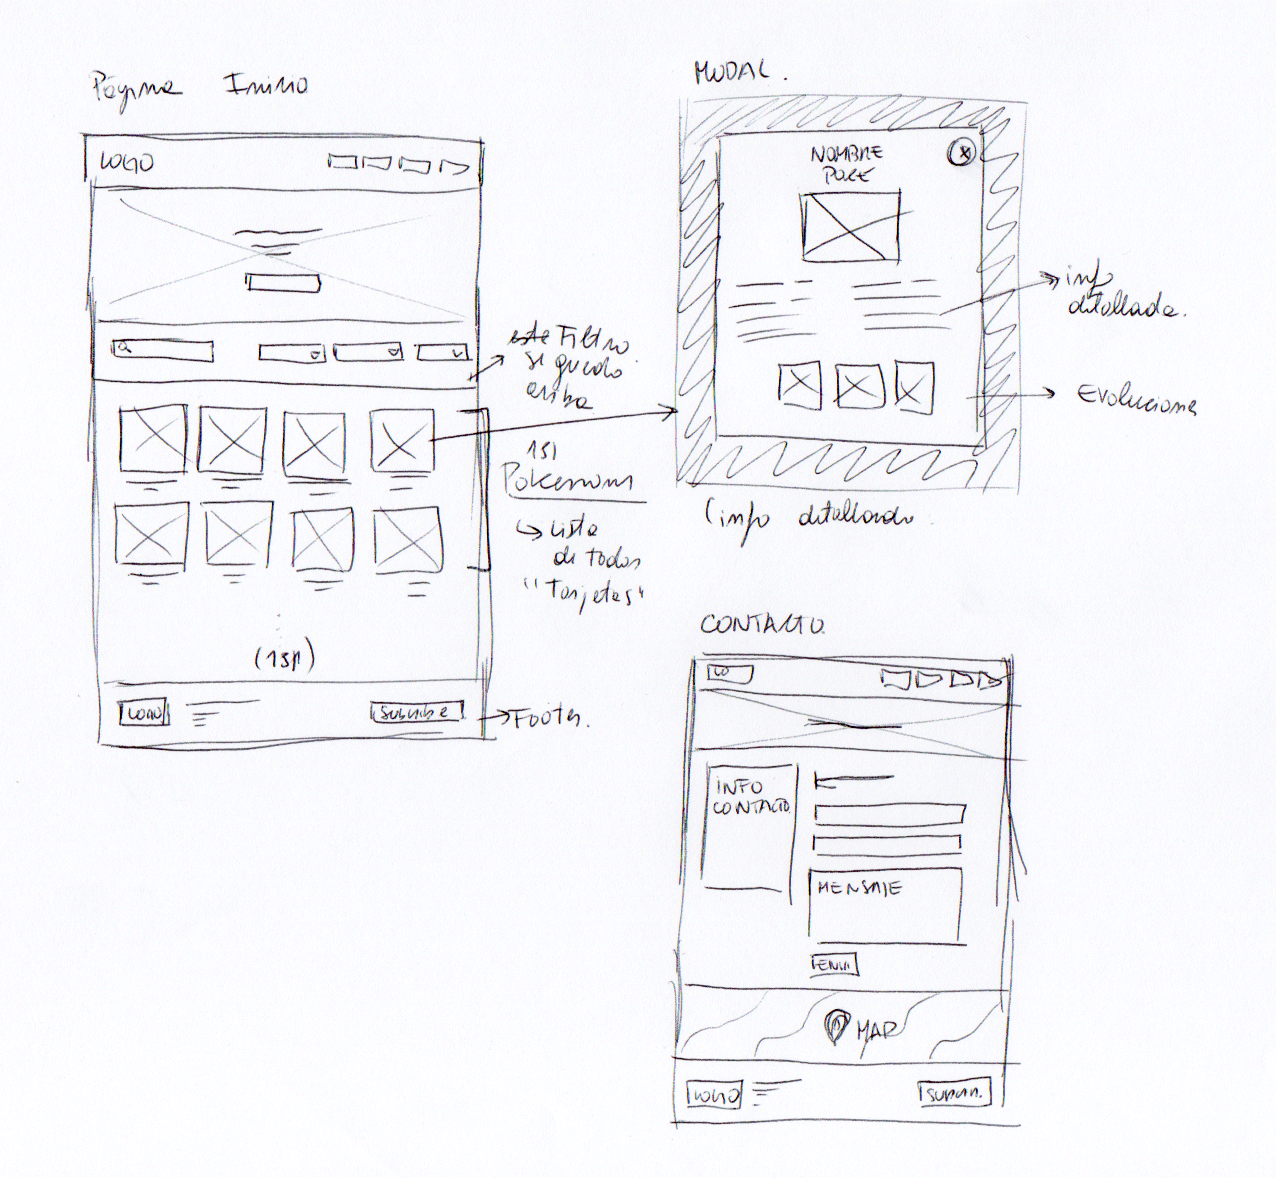 Página Inicio
LOGO
este Filtro
se quedo
arriba
151
Pokemons
Lista
de todos
"Tarjetas"
(151)
LOGO
Subscribe
Footer.
MODAL.
NOMBRE
POKE
X
info
detallada.
Evoluciones
(info detallada.
CONTACTO
LO
INFO
CONTACTO
MENSAJE
ENVI.
MAP
LOGO